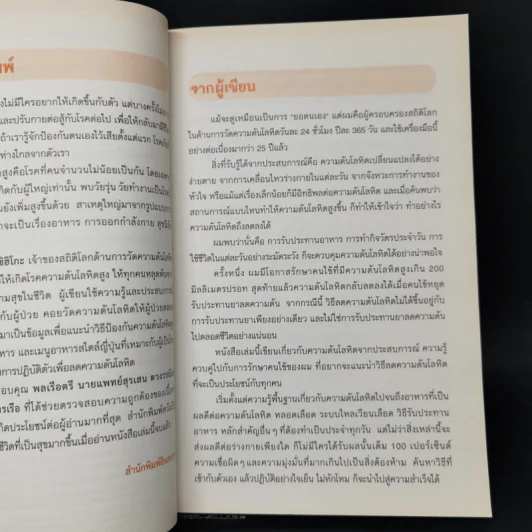 พ์
งไม่มีใครอยากให้เกิดขึ้นกับตัว แต่บางครั้ง
และปรับกายต่อสู้กับโรคต่อไป เพื่อให้กลับมามี
ถ้าเรารู้จักป้องกันตนเองไว้ตั้งแต่แรก
ห่างไกลจากตัวเรา
สูงคือโรคที่คนจำนวนไม่น้อยเป็นกัน โดย
กิดกับผู้ใหญ่เท่านั้น พบวัยรุ่น วัยทำงานเป็น
นยังเพิ่มสูงขึ้นด้วย สาเหตุใหญ่มาจากรูปแบบ
าจะเป็นเรื่องอาหาร การออกกำลังกาย
เจ้าของสถิติโลกด้านการวัดความดันโลหิต
ให้เกิดโรคความดันโลหิตสูง ให้ทุกคนหลุดพ้น
ามสุขในชีวิต ผู้เขียนใช้ความรู้และประสบการ
กับผู้ป่วย คอยวัดความดันโลหิตให้ผู้ป่วย
มาเป็นข้อมูลเพื่อแนะนำวิธีป้องกันความดันโลหิต
หาร และเมนูอาหารสไตล์ญี่ปุ่นที่เหมาะกับผู้เป็น
การปฏิบัติตัวเพื่อลดความดันโลหิต
อบคุณ พลเรือตรี นายแพทย์สุรเสน
เรือ ที่ได้ช่วยตรวจสอบความถูกต้องของเนื้อ
กิดประโยชน์ต่อผู้อ่านมากที่สุด สำนักพิมพ์หวัง
ชีวิตที่เป็นสุขมากขึ้นเมื่ออ่านหนังสือเล่มนี้จบแล้ว
สำนักพิมพ์
จากผู้เขียน
แม้จะดูเหมือนเป็นการ "ยอตนเอง" แต่ผมคือผู้ครอบครองสถิติโลก
ในด้านการวัดความดันโลหิตวันละ 24 ชั่วโมง ปีละ 365 วัน และใช้เครื่องมือนี้
อย่างต่อเนื่องมากว่า 25 ปีแล้ว
สิ่งที่รับรู้ได้จากประสบการณ์คือ ความดันโลหิตเปลี่ยนแปลงได้อย่าง
ง่ายดาย จากการเคลื่อนไหวร่างกายในแต่ละวัน จากจังหวะการทำงานของ
หัวใจ หรือแม้แต่เรื่องเล็กน้อยก็มีอิทธิพลต่อความดันโลหิต และเมื่อค้นพบว่า
สถานการณ์แบบไหนทำให้ความดันโลหิตสูงขึ้น ก็ทำให้เข้าใจว่า ทำอย่างไร
ความดันโลหิตถึงลดลงได้
ผมพบว่านั่นคือ การรับประทานอาหาร การทำกิจวัตรประจำวัน การ
ใช้ชีวิตในแต่ละวันอย่างระมัดระวัง ก็จะควบคุมความดันโลหิตได้อย่างน่าพอใจ
ครั้งหนึ่ง ผมมีโอกาสรักษาคนไข้ที่มีความดันโลหิตสูงเกิน 200
มิลลิเมตรปรอท สุดท้ายแล้วความดันโลหิตกลับลดลงได้เมื่อคนไข้หยุด
รับประทานยาลดความดัน จากกรณีนี้ วิธีลดความดันโลหิตไม่ได้ขึ้นอยู่กับ
การรับประทานยาเพียงอย่างเดียว และไม่ใช่การรับประทานยาลดความดัน
ไปตลอดชีวิตอย่างแน่นอน
หนังสือเล่มนี้เขียนเกี่ยวกับความดันโลหิตจากประสบการณ์ ความรู้
ควบคู่ไปกับการรักษาคนไข้ของผม ที่อยากจะแนะนำวิธีลดความดันโลหิต
ที่จะเป็นประโยชน์กับทุกคน
เริ่มตั้งแต่ความรู้พื้นฐานเกี่ยวกับความดันโลหิตไปจนถึงอาหารที่เป็น
ผลดีต่อความดันโลหิต หลอดเลือด ระบบไหลเวียนเลือด วิธีรับประทาน
อาหาร หลักสำคัญอื่น ๆ ที่ต้องทำเป็นประจำทุกวัน แต่ไม่ว่าสิ่งเหล่านี้จะ
ส่งผลดีต่อร่างกายเพียงใด ก็ไม่มีใครได้รับผลนั้นเต็ม 100 เปอร์เซ็นต์
ความเชื่อผิด ๆ และความมุ่งมั่นที่มากเกินไปเป็นสิ่งต้องห้าม ค้นหาวิธีที่
เข้ากับตัวเอง แล้วปฏิบัติอย่างใจเย็น ไม่หักโหม ก็จะนำไปสู่ความสำเร็จได้